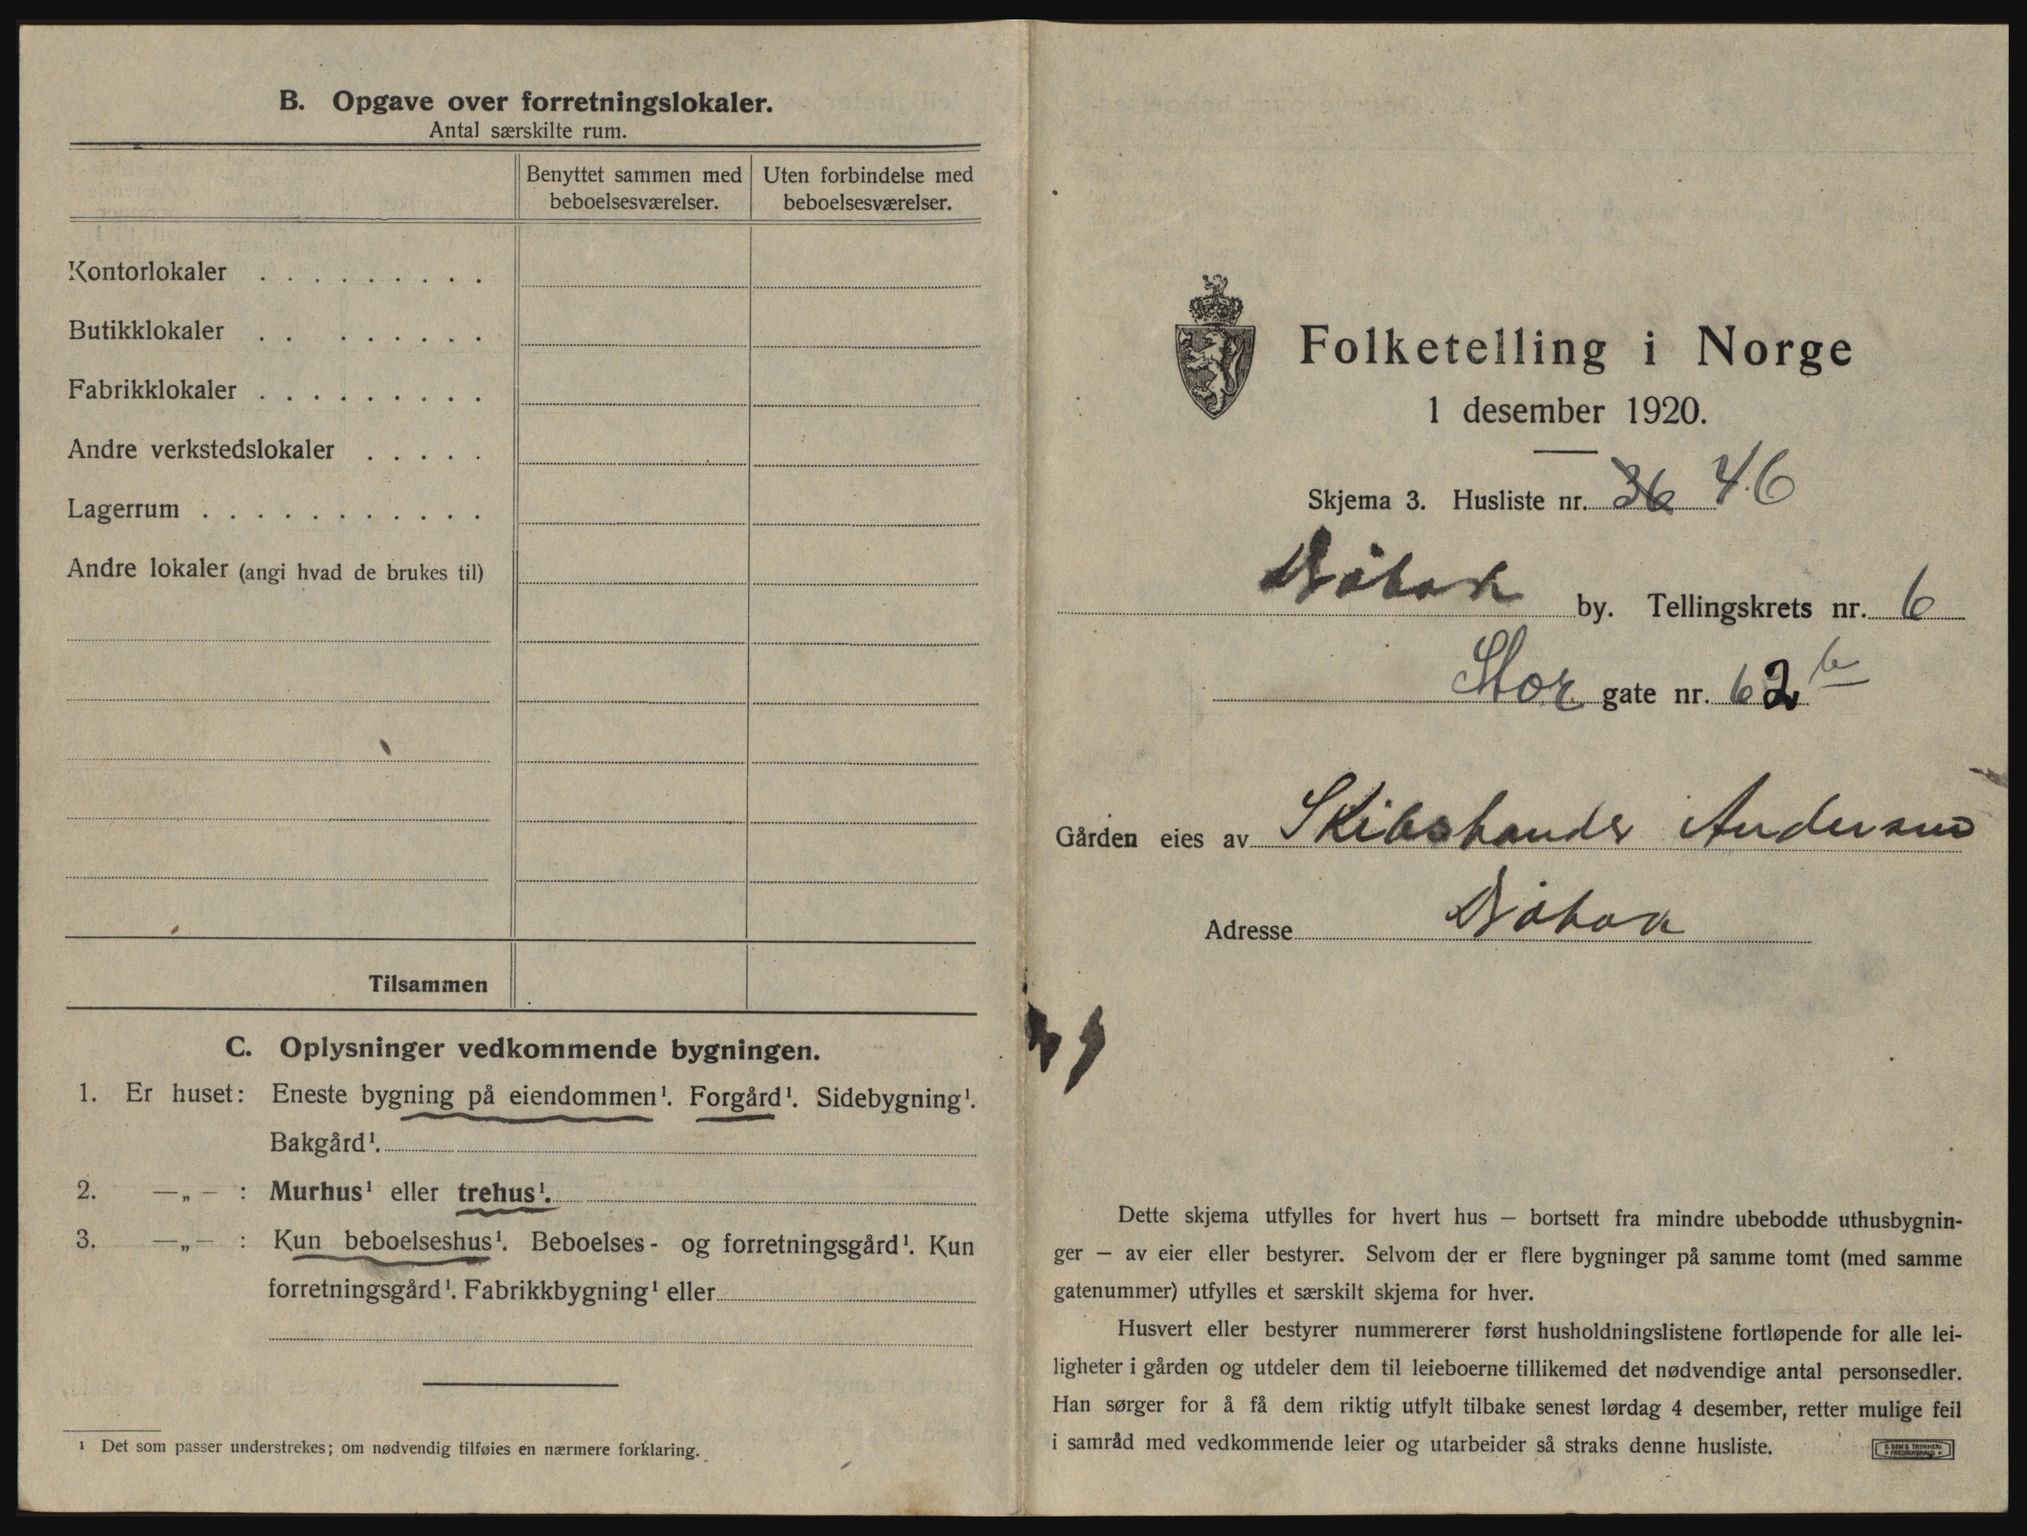 B. Opgave over forretningslokaler.
Antal særskilte rum.
Benyttet sammen med beboelsesværelser.
Uten forbindelse med beboelsesværelser.
Kontorlokaler . . . . . . . . .
Butikklokaler . . . . . . . .
Fabrikklokaler . . . . . . . . .
Andre verkstedslokaler . . . . .
Lagerrum . . . . . . . . . . .
Andre lokaler (angi hvad de brukes til)
Tilsammen
C. Oplysninger vedkommende bygningen.
1. Er huset: Eneste bygning på eiendommen¹. Forgård¹. Sidebygning¹.
Bakgård¹.
2. —„— : Murhus¹ eller trehus¹.
3. —„— : Kun beboelseshus¹. Beboelses- og forretningsgård¹. Kun
forretningsgård¹. Fabrikkbygning¹ eller
¹ Det som passer understrekes; om nødvendig tilføies en nærmere forklaring.
Folketelling i Norge
1 desember 1920.
Skjema 3. Husliste nr. 36 46
Drøbak by. Tellingskrets nr. 6
Stor gate nr. 62 b
Gården eies av Skibshandler Andersen
Adresse Drøbak
Dette skjema utfylles for hvert hus — bortsett fra mindre ubebodde uthusbygnin-
ger — av eier eller bestyrer. Selvom der er flere bygninger på samme tomt (med samme
gatenummer) utfylles et særskilt skjema for hver.
Husvert eller bestyrer nummererer først husholdningslistene fortløpende for alle lei-
ligheter i gården og utdeler dem til leieboerne tillikemed det nødvendige antal personsedler.
Han sørger for å få dem riktig utfylt tilbake senest lørdag 4 desember, retter mulige feil
i samråd med vedkommende leier og utarbeider så straks denne husliste.